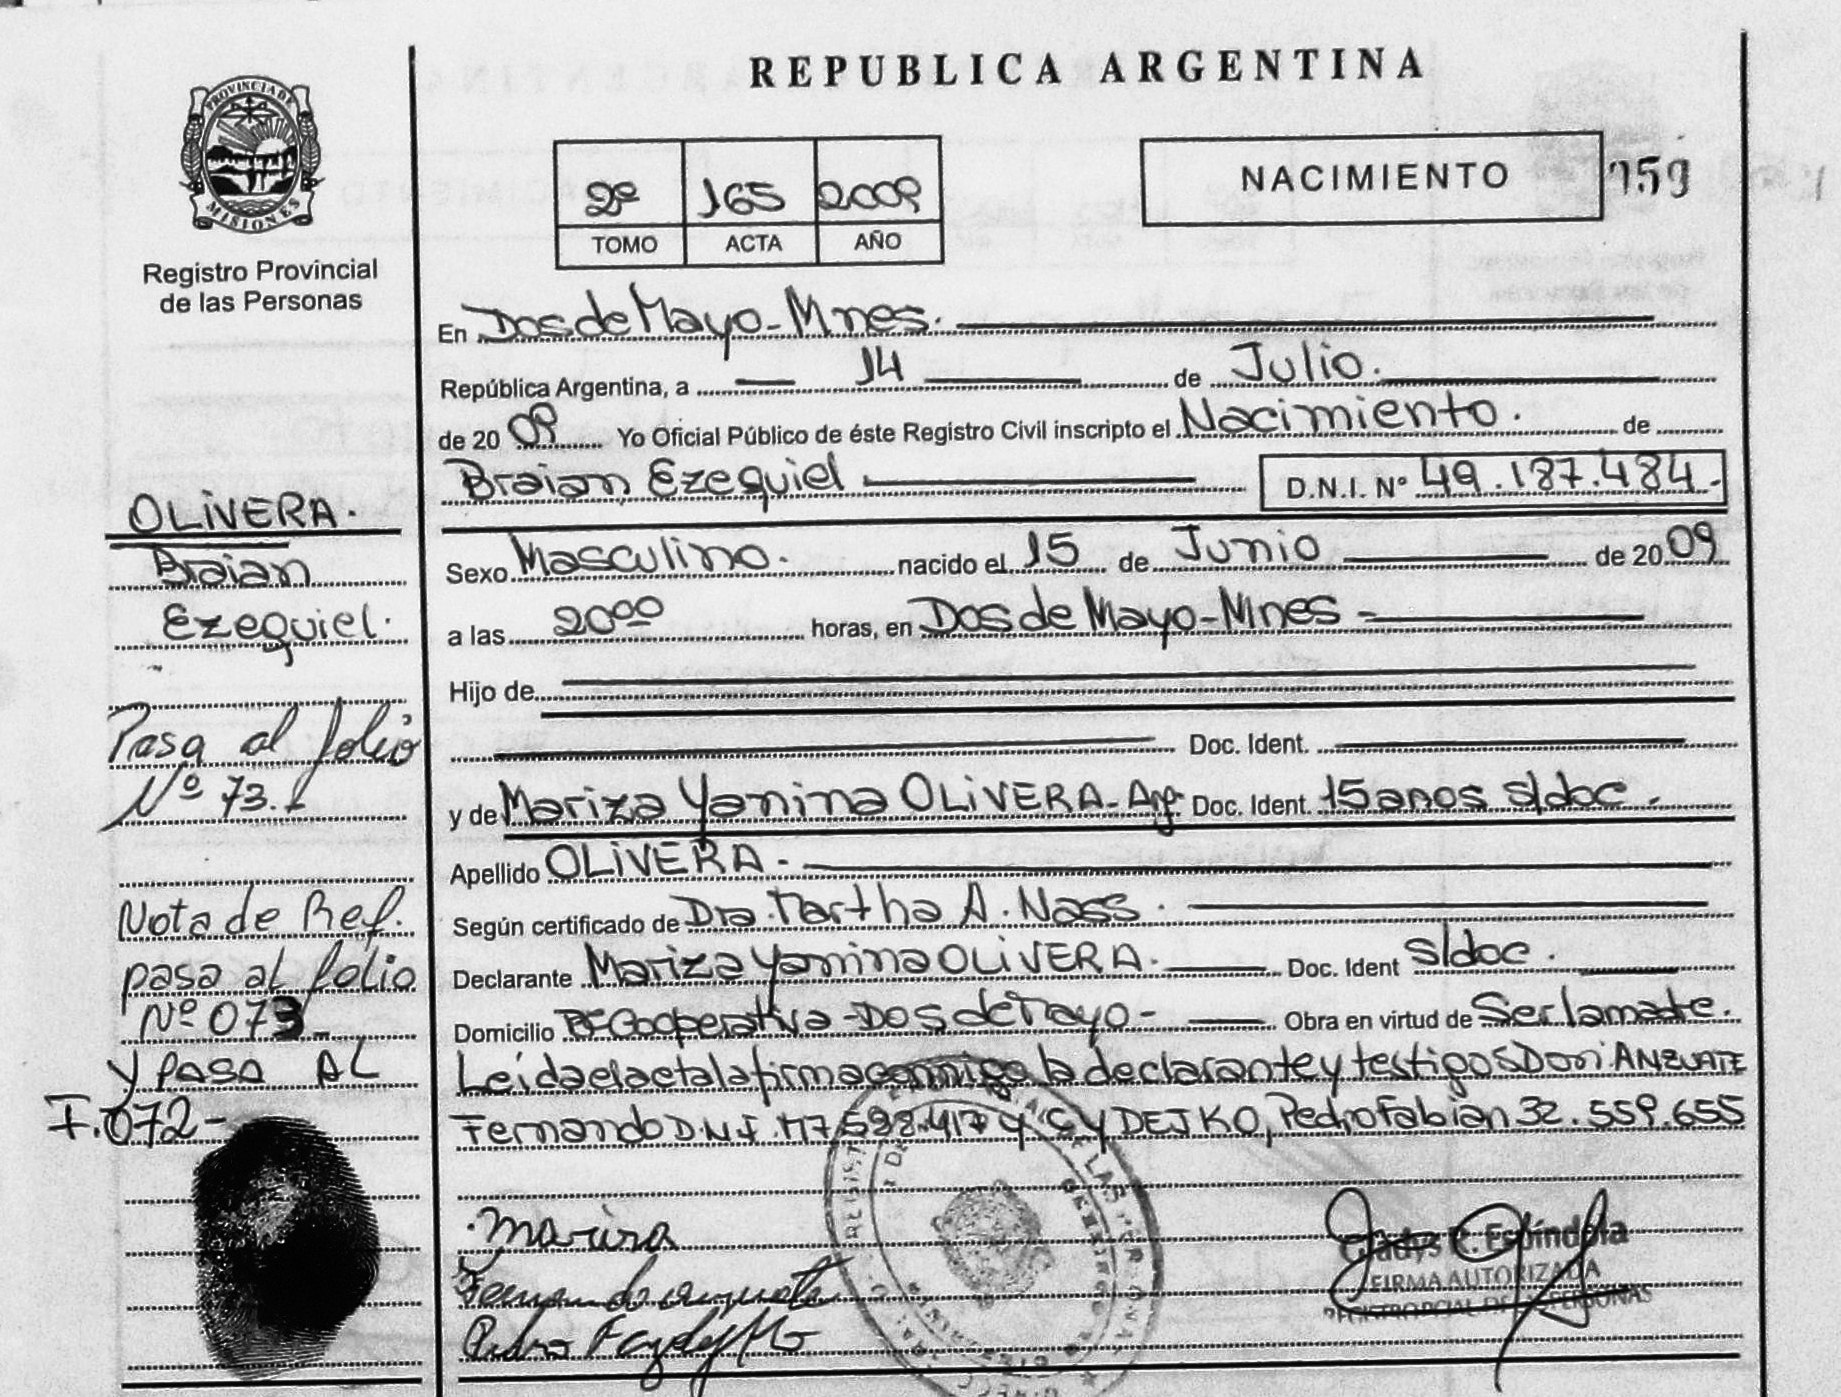 REPUBLICA ARGENTINA
PROVINCIA DE
MISIONES
Registro Provincial
de las Personas
2º 165 2009
TOMO ACTA AÑO
NACIMIENTO 159
En Dos de Mayo - Mnes.
República Argentina, a 14 de Julio.
de 2009 Yo Oficial Público de éste Registro Civil inscripto el Nacimiento. de
Braian Ezequiel D.N.I. Nº 49.187.484.-
Sexo Masculino. nacido el 15 de Junio de 2009
a las 20⁰⁰ horas, en Dos de Mayo - Mnes -
Hijo de
Doc. Ident.
y de Mariza Yanina OLIVERA - Arg. Doc. Ident. 15 anos s/doc.
Apellido OLIVERA.
Según certificado de Dra. Martha A. Nass.
Declarante Mariza Yanina OLIVERA. Doc. Ident s/doc.
Domicilio Bº Cooperativa - Dos de Mayo - Obra en virtud de Ser la madre.
Leida el acta la firma conmigo la declarante y testigos Don: ANZUATE
Fernando D.N.I. 17.598.417 y CYDEJKO, Pedro Fabian 32.559.655
OLIVERA.
Braian
Ezequiel.
Pasa al folio
Nº 73.-
Nota de Ref.
pasa al folio
Nº 073-
Y PASA AL
F.072-
Mariza
Fernando
Pedro
Gladys E. Espíndola
FIRMA AUTORIZADA
REGISTRO PCIAL. DE LAS PERSONAS